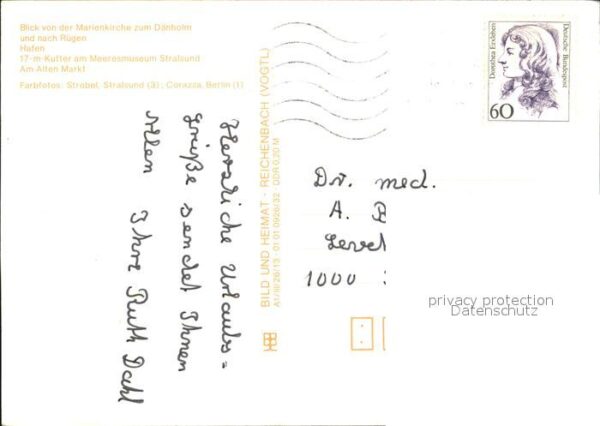 Blick von der Marienkirche zum Dänholm
und nach Rügen
Hafen
17-m-Kutter am Meeresmuseum Stralsund
Am Alten Markt
Farbfotos: Strobel, Stralsund (3); Corazza, Berlin (1)
Herzliche Urlaubs=
grüße sendet Ihnen
Allen Ihre Ruth Dahl
BILD UND HEIMAT · REICHENBACH (VOGTL)
A1/III/26/13 · 01 01 0926/32 DDR 0,20 M
Dorothea Erxleben
Deutsche Bundespost
60
Dr. med.
A. B
1000
privacy protection
Datenschutz